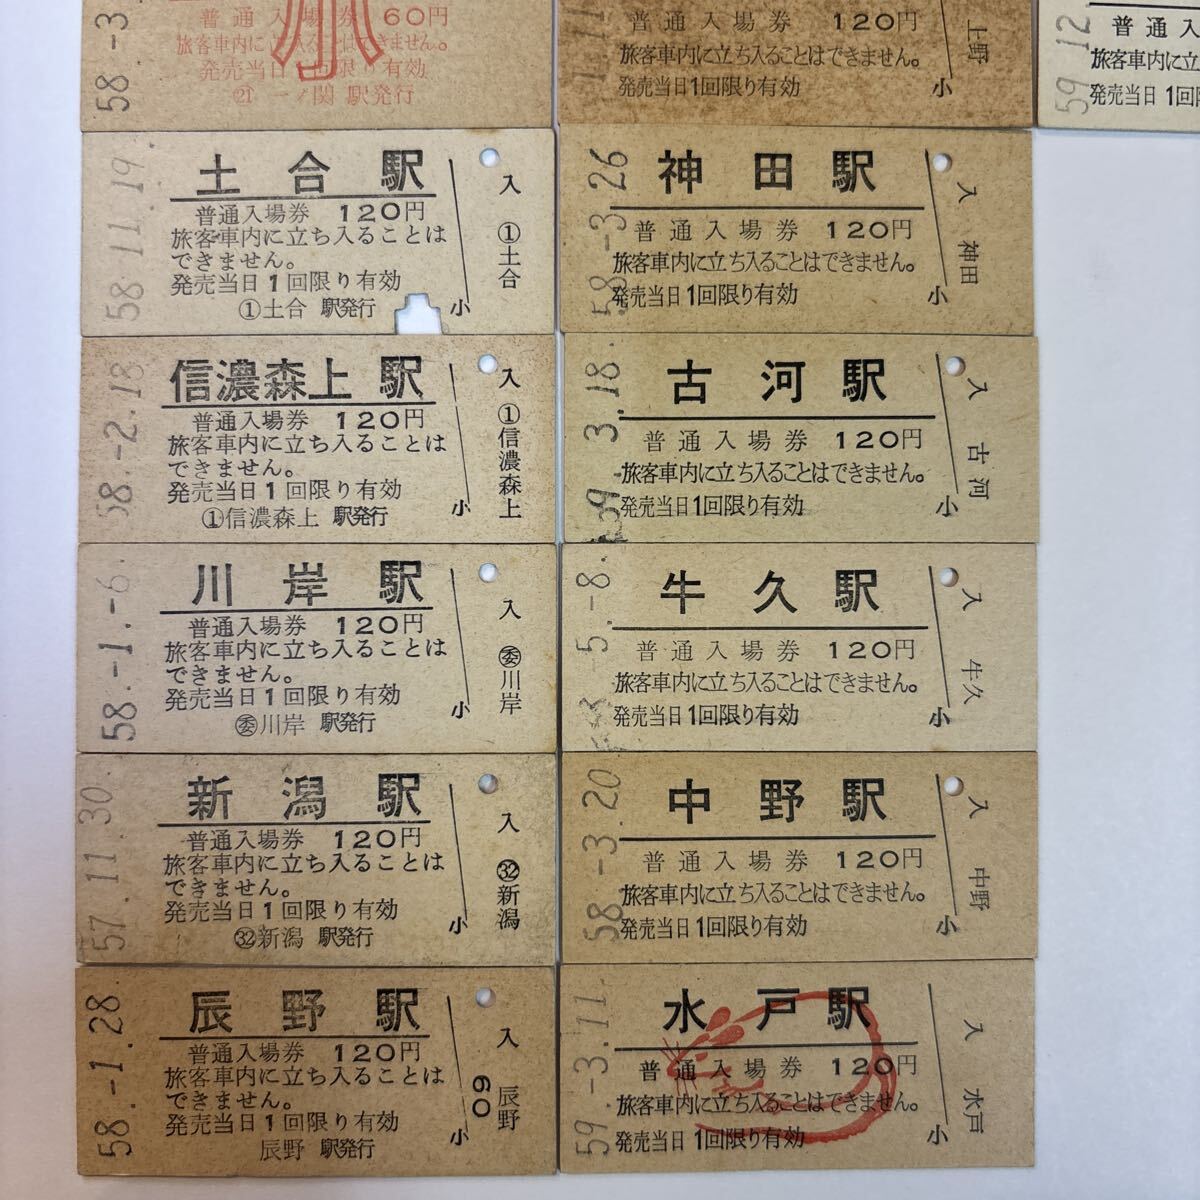 58.-3
普通入場券 60円
旅客車内に立ち入ることはできません。
発売当日1回限り有効
㉑ 一ノ関 駅発行
小
普通入場券 120円
旅客車内に立ち入ることはできません。
発売当日1回限り有効
上野
小
59.12
普通入
旅客車内に立
発売当日1回限
58.11.19.
土合駅
普通入場券 120円
旅客車内に立ち入ることは
できません。
発売当日1回限り有効
①土合 駅発行
小
入
①土合
58.-3.26
神田駅
普通入場券 120円
旅客車内に立ち入ることはできません。
発売当日1回限り有効
小
入
神田
58.-2.18
信濃森上駅
普通入場券 120円
旅客車内に立ち入ることは
できません。
発売当日1回限り有効
①信濃森上 駅発行
小
入
①信濃森上
59.-3.18
古河駅
普通入場券 120円
旅客車内に立ち入ることはできません。
発売当日1回限り有効
小
入
古河
58.-1.-6.
川岸駅
普通入場券 120円
旅客車内に立ち入ることは
できません。
発売当日1回限り有効
㊀川岸 駅発行
小
入
川岸
-5.-8.
牛久駅
普通入場券 120円
旅客車内に立ち入ることはできません。
発売当日1回限り有効
小
入
牛久
57.11.30.
新潟駅
普通入場券 120円
旅客車内に立ち入ることは
できません。
発売当日1回限り有効
㉜新潟 駅発行
小
入
㉜新潟
58.-3.20
中野駅
普通入場券 120円
旅客車内に立ち入ることはできません。
発売当日1回限り有効
小
入
中野
58.-1.28.
辰野駅
普通入場券 120円
旅客車内に立ち入ることは
できません。
発売当日1回限り有効
辰野 駅発行
小
入
辰野
60
59.-3.11.
水戸駅
普通入場券 120円
旅客車内に立ち入ることはできません。
発売当日1回限り有効
小
入
水戸